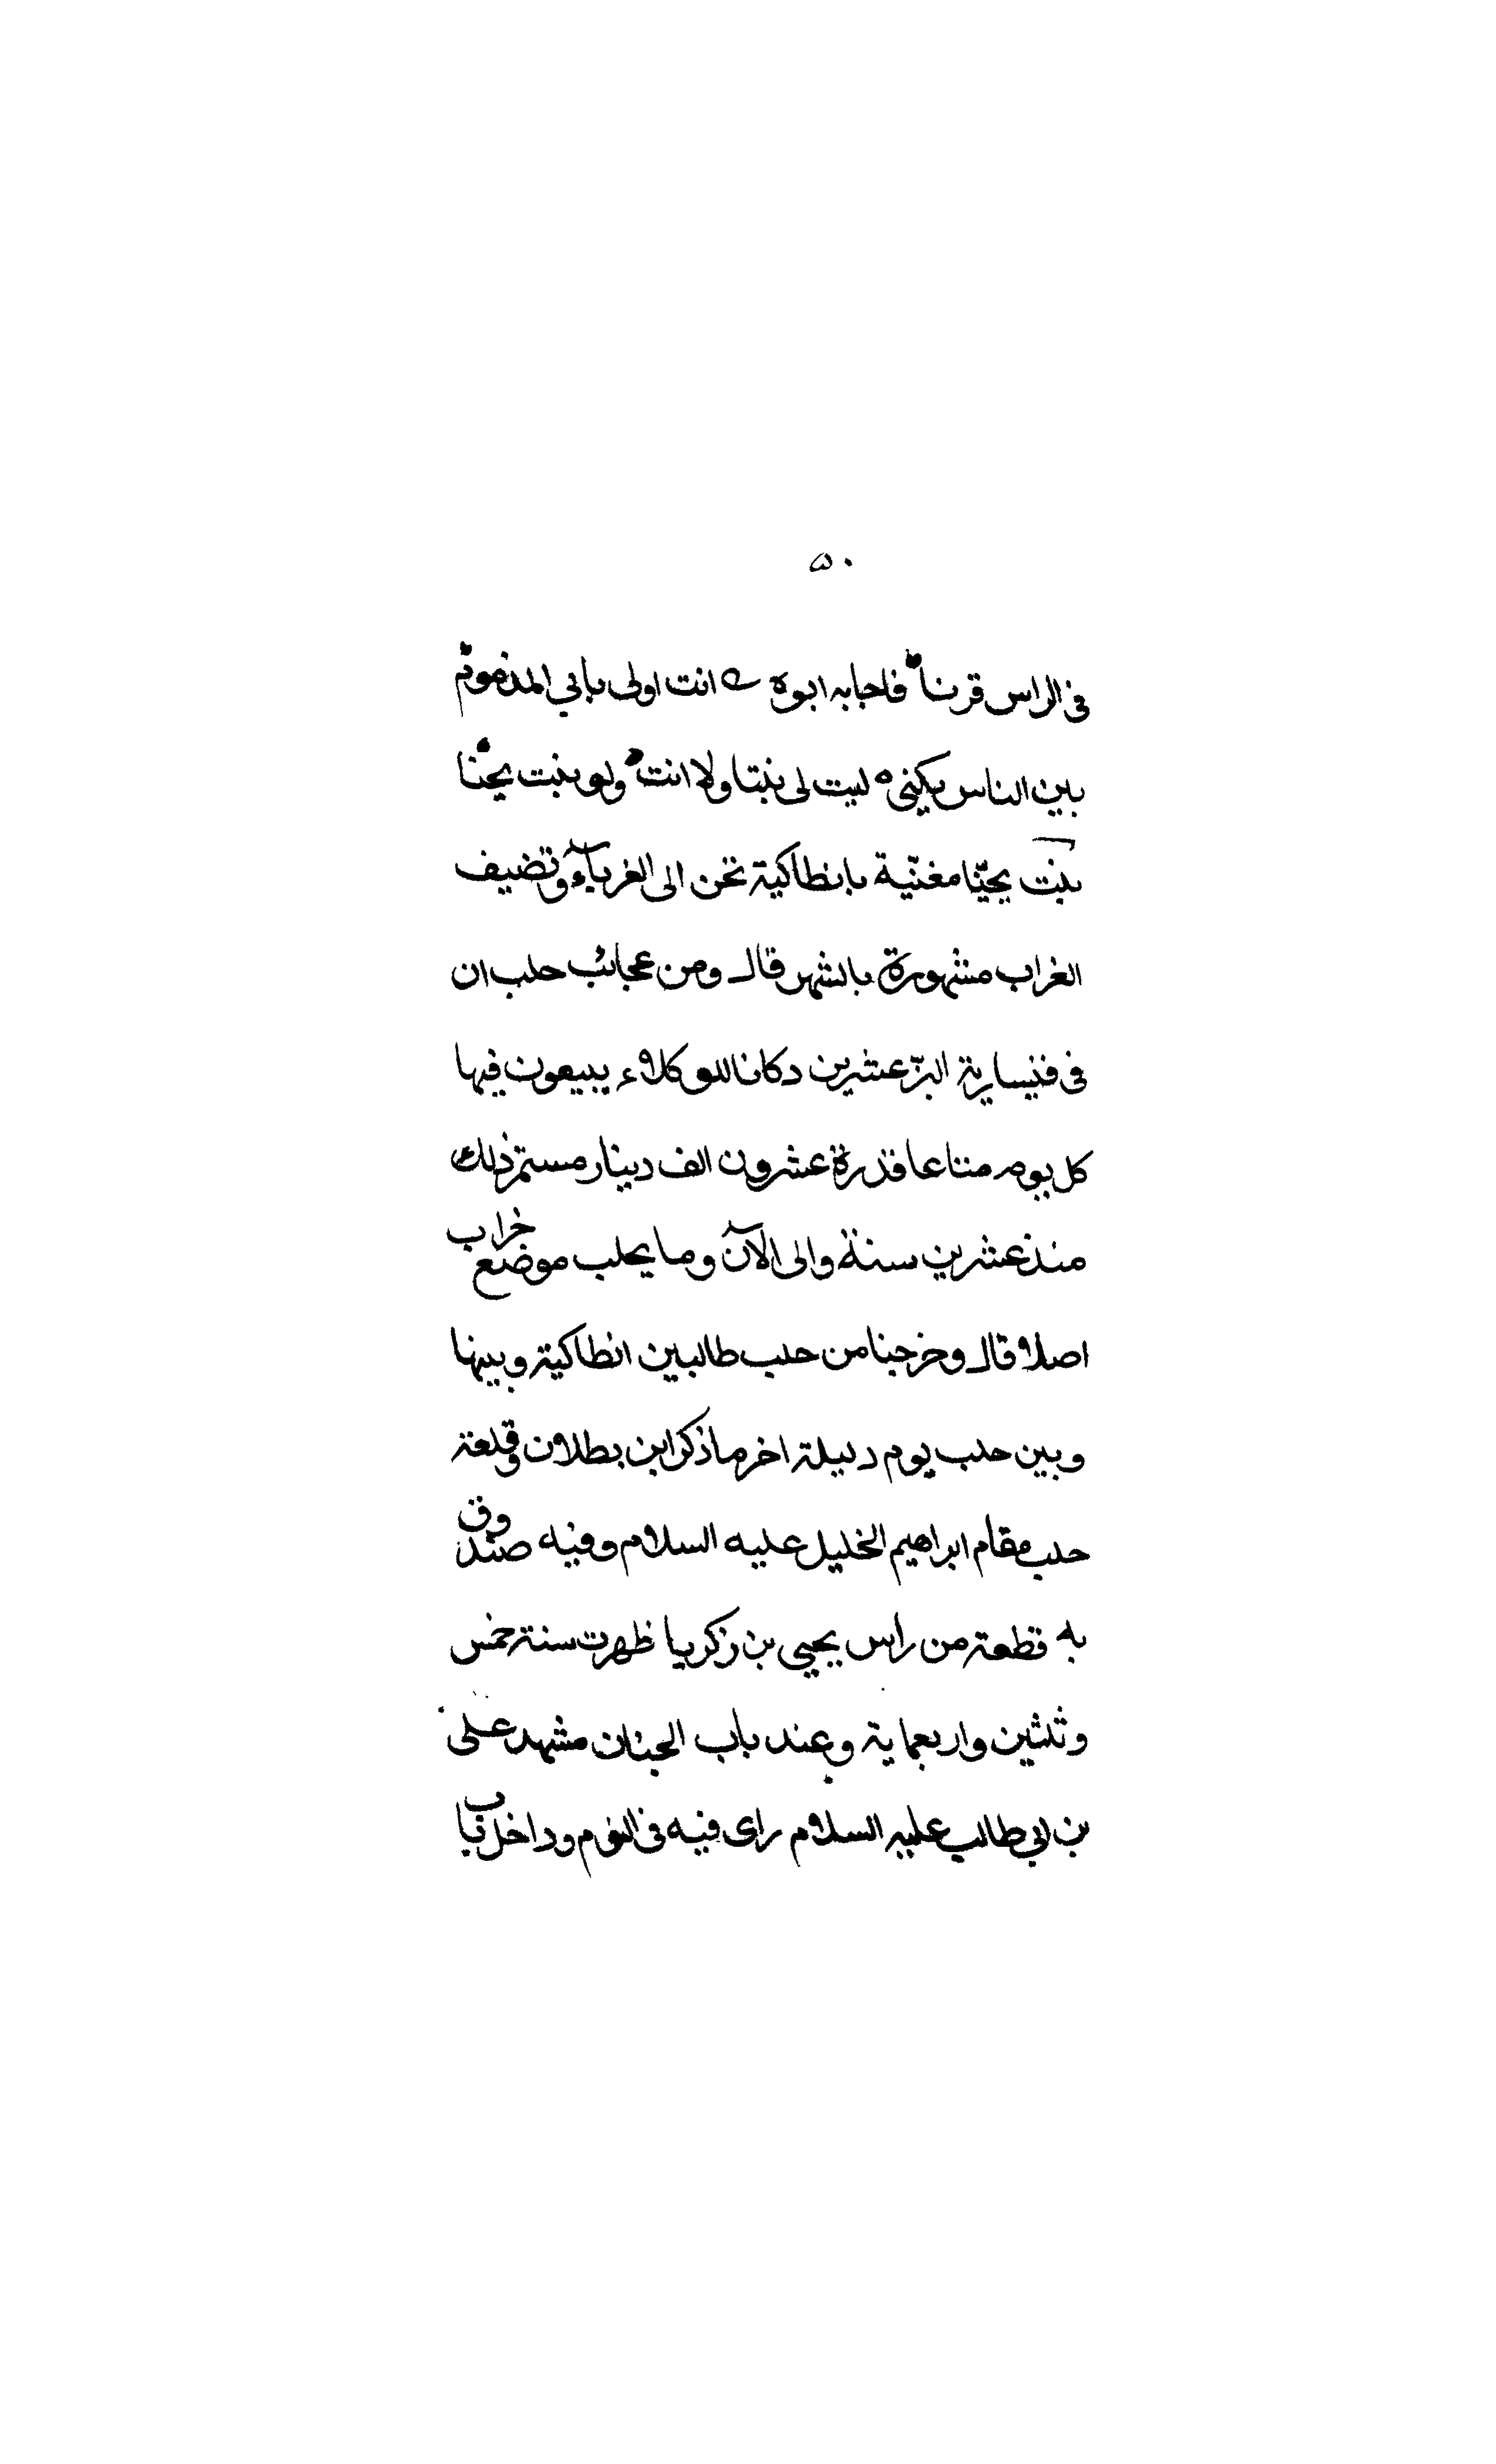 ٥٠
فى الراس قرنا فاجابه ابوه انت اولى بابي المذموم
بين الناس يكنى ليت لى بنتا ولا انت ولو بنت يحنا
بنت يحنّا مغنّية بانطاكية تحن الى الغرباء وتضيف
الغراب مشهورة بالشهر قال ومن عجائب حلب ان
فى قنيسارية البزّ عشرين دكانا للوكلاء يبيعون فيها
كل يوم متاعا قدرة عشرون الف دينار مستمر ذلك
منذ عشرين سنة والى الآن وما بحلب موضع خراب
اصلا قال وخرجنا من حلب طالبين انطاكية وبينها
وبين حلب يوم وليلة اخر ما ذكر ابن بطلان وقلعة
حلب مقام ابراهيم الخليل عليه السلام وفيه صندوق
به قطعة من راس يحيى بن زكريا ظهرت سنة خمس
وثلثين واربعماية وعند باب الجنان مشهد على
بن ابي طالب عليه السلام راى فيه فى النوم وداخل باب